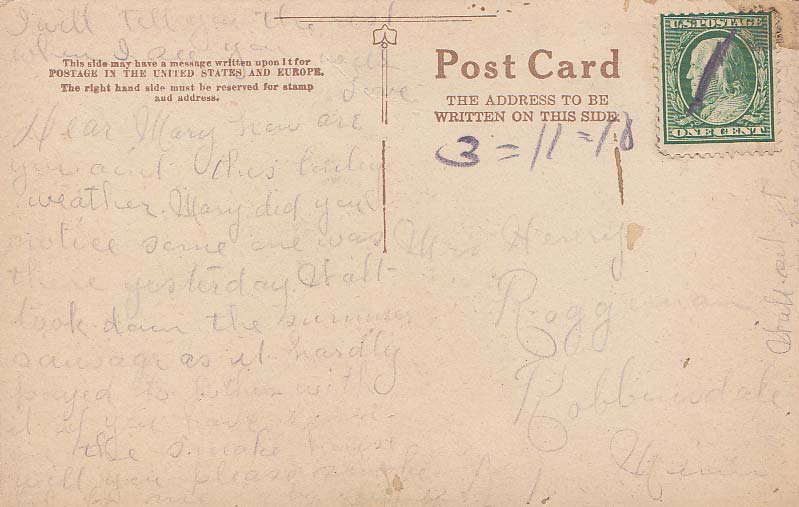 I will tell you the rest
when I see you with
love
This side may have a message written upon it for
POSTAGE IN THE UNITED STATES AND EUROPE.
The right hand side must be reserved for stamp
and address.
Dear Mary how are
you aint this lovely
weather. Mary did you
notice some one was
there yesterday. Walt
took down the summer
sausage as it hardly
payed to bother with
it if you have
the smoke house
will you please smoke
Post Card
THE ADDRESS TO BE
WRITTEN ON THIS SIDE.
3=11=18
U.S. POSTAGE
ONE CENT
Mrs Henry
Roggeman
Robbinsdale
Minn
Walt